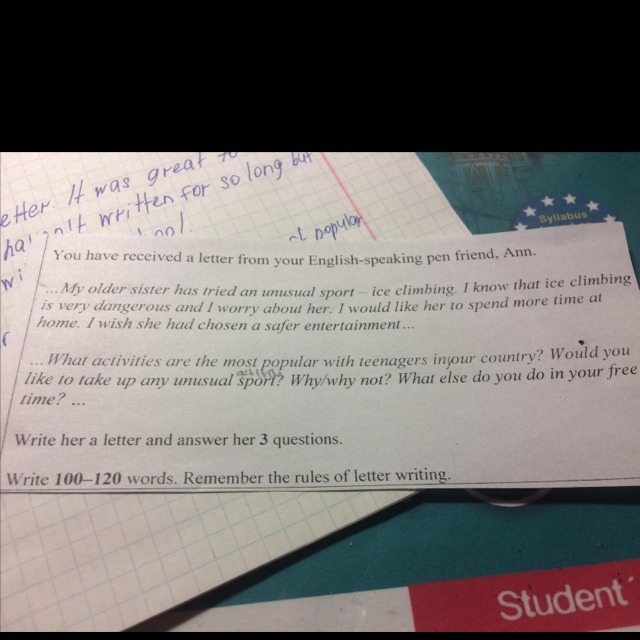 etter. It was great to
written for so long but
popular
Syllabus
You have received a letter from your English-speaking pen friend, Ann.
...My older sister has tried an unusual sport – ice climbing. I know that ice climbing
is very dangerous and I worry about her. I would like her to spend more time at
home. I wish she had chosen a safer entertainment...
...What activities are the most popular with teenagers in your country? Would you
like to take up any unusual sport? Why/why not? What else do you do in your free
time? ...
Write her a letter and answer her 3 questions.
Write 100–120 words. Remember the rules of letter writing.
Student